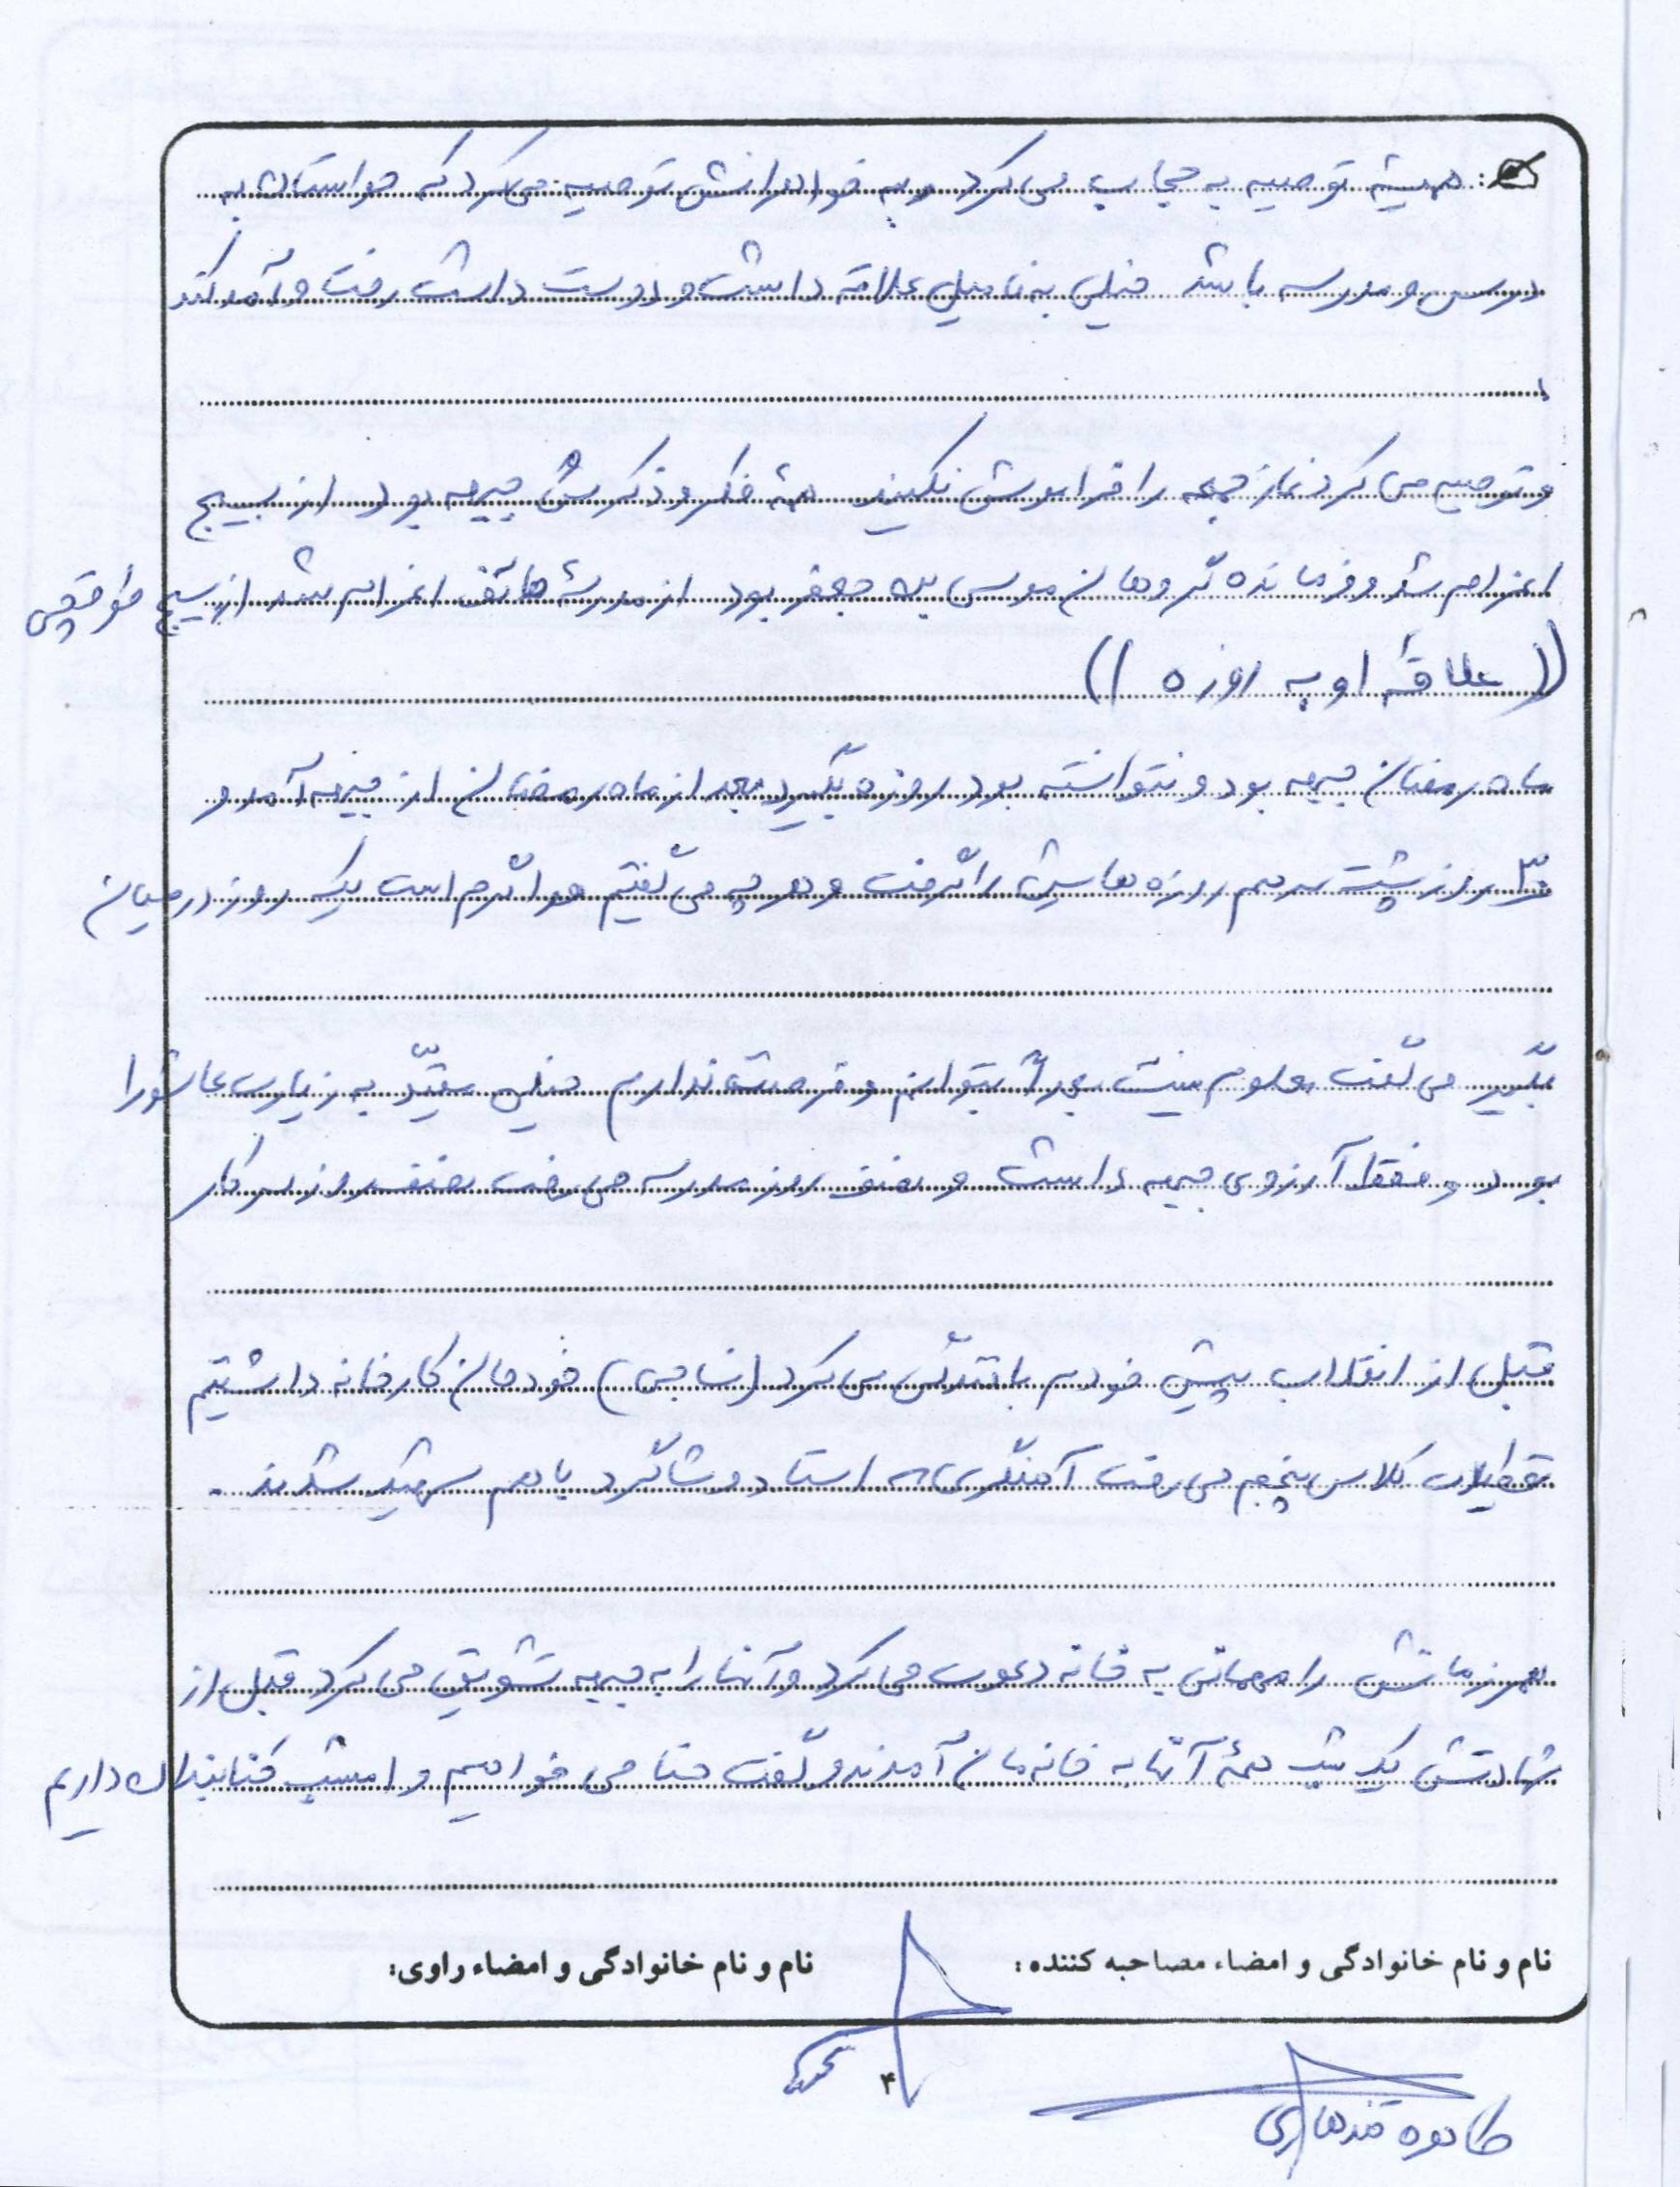 همیشه توصیه به حجاب می کرد و به خواهرانش توصیه می کرد که حواستان به
درس و مدرسه باشد خیلی به فامیل علاقه داشت و دوست داشت رفت و آمد کند
و توصیه می کرد نماز جمعه را فراموش نکنید همۀ فکر و ذکرش جبهه بود از بسیج
اعزام شد و فرمانده گروهان موسی بن جعفر بود از مدرسۀ هاتف اعزام شد از بسیج طوقچی
(( علاقۀ او به روزه ))
ماه رمضان جبهه بود و نتوانسته بود روزه بگیرد بعد از ماه رمضان از جبهه آمد و
۳۰ روز پشت سر هم روزه هایش را گرفت و هر چه می گفتیم هوا گرم است یک روز در میان
بگیر می گفت معلوم نیست بعداً بتوانم و فرصت ندارم خیلی مقیّد به زیارت عاشورا
بود و فقط آرزوی جبهه داشت و نصف روز مدرسه می رفت نصف روز سر کار
قبل از انقلاب پیش خودم بافندگی می کرد (نساجی) خودمان کارخانه داشتیم
تعطیلات کلاس پنجم می رفت آهنگری که استاد و شاگرد با هم شهید شدند .
همرزمانش را مهمانی به خانه دعوت می کرد و آنها را به جبهه تشویق می کرد قبل از
شهادتش یک شب همۀ آنها به خانه مان آمدند و گفت حنا می خواهیم و امشب حنابندان داریم
نام و نام خانوادگی و امضاء مصاحبه کننده :
نام و نام خانوادگی و امضاء راوی:
۴
طاهره قندهاری